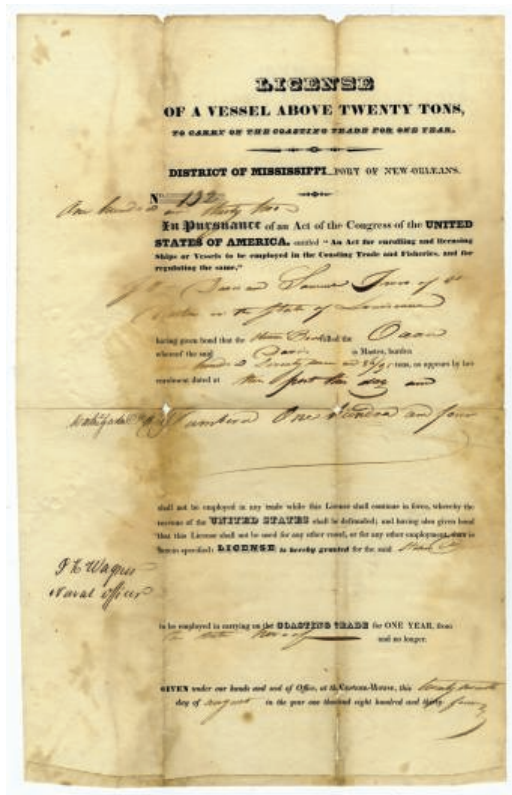 LICENSE
OF A VESSEL ABOVE TWENTY TONS,
TO CARRY ON THE COASTING TRADE FOR ONE YEAR.
DISTRICT OF MISSISSIPPI PORT OF NEW-ORLEANS.
N 132
One hundred thirty two
In Pursuance of an Act of the Congress of the UNITED
STATES OF AMERICA, entitled "An Act for enrolling and licensing
Ships or Vessels to be employed in the Coasting Trade and Fisheries, and for
regulating the same,"
Samuel of
in the State of Louisiana
having given bond that the Steam Boat called the
whereof the said Davis is Master, burden
hundred tons, as appears by her
enrolment dated at this port this day and
Numbered One Hundred and four
shall not be employed in any trade while this License shall continue in force, whereby the
revenue of the UNITED STATES shall be defrauded; and having also given bond
that this License shall not be used for any other vessel, or for any other employment, than is
herein specified; LICENSE is hereby granted for the said
Wagner
Naval officer
to be employed in carrying on the COASTING TRADE for ONE YEAR, from
the date hereof and no longer.
GIVEN under our hands and seal of Office, at the Custom-House, this twenty
day of August in the year one thousand eight hundred and thirty four